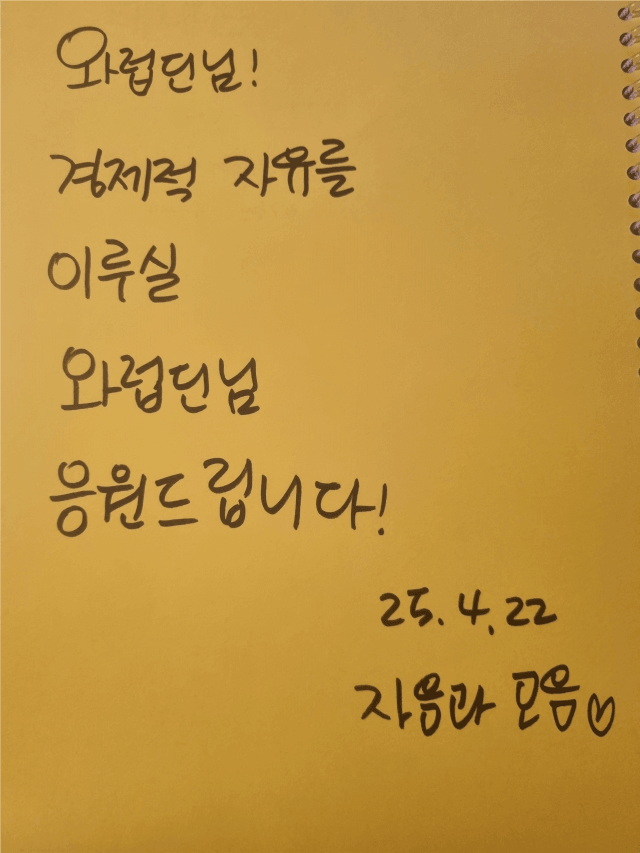 와럽딘님!
경제적 자유를
이루실
와럽딘님
응원드립니다!
25. 4. 22
자음과 모음♡